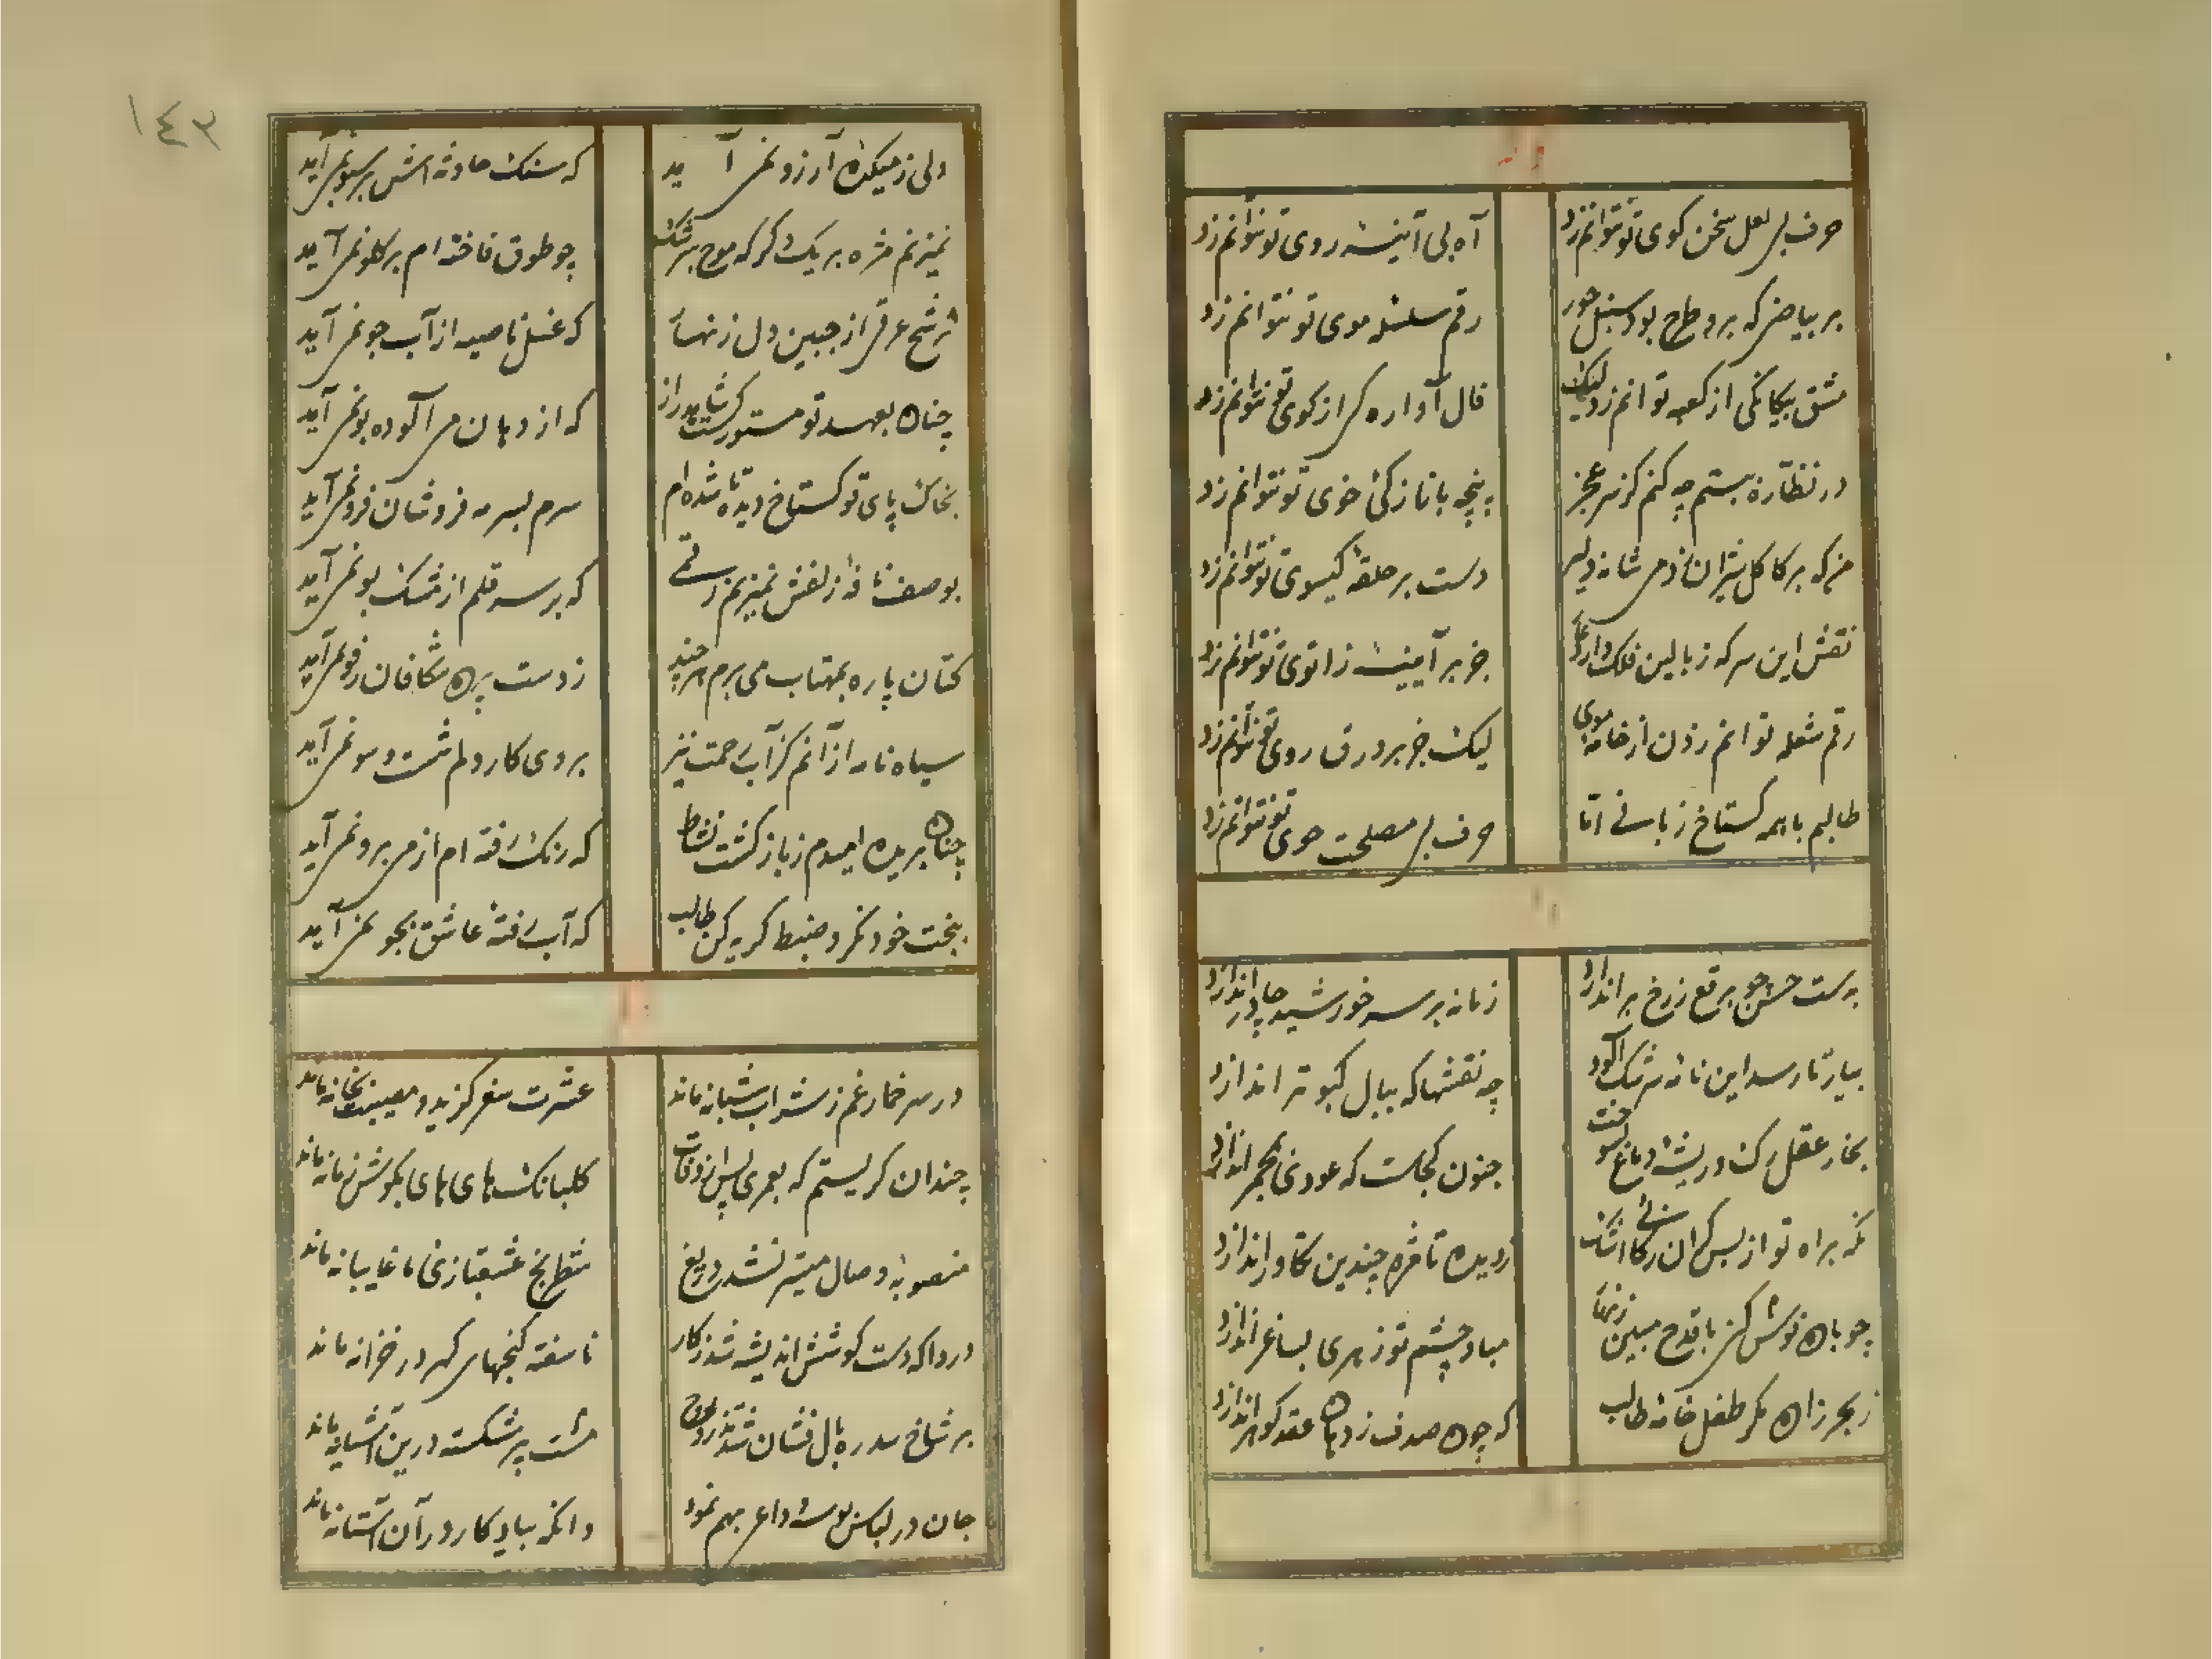 حرف بر لعل سخن کوی تو نتوانم زد
آه بی آینه روی تو نتوانم زد
بر بیاضی که برو طرح بود سنبل حور
رقم سلسله موی تو نتوانم زد
مشق بیکانکی از کعبه توانم زد لیک
فال آواره کی از کوی تو نتوانم زد
در نظاره ببستم چه کنم کز سر عجز
پنجه با نازکی خوی تو نتوانم زد
من که بر کاکل شیران زدمی شانه دلیر
دست بر حلقه کیسوی تو نتوانم زد
نقش این سر که ز بالین فلک دارد
جز بر آیینه زانوی تو نتوانم زد
رقم شعله توانم زدن از خامه موی
لیک جز بر ورق روی تو نتوانم زد
طالبم با همه کستاخ زبانی اما
حرف بر مصلحت خوی تو نتوانم زد
بدست حسن چو برقع ز رخ بر اندازد
زمانه بر سر خورشید چادر اندازد
بیار تا رسد این نامه سرشک آلود
چه نقشها که ببال کبوتر اندازد
بخار عقل رک و ریشه دماغ سوخت
جنون کجاست که عودی بمجمر اندازد
نکه براه تو از بس
ز دیده تا مژه چندین تکاور اندازد
چو باده نوش کنی با قدح مبین زنهار
مباد چشم تو زهری بساغر اندازد
ز بحر زاده مکر طفل خامه طالب
که چون صدف ز دهان عقد کوهر اندازد
١٤٣
دلی ز میکده آرزو نمی آید
که سنک حادثه اش بر سبو نمی آید
نمیزنم مژه بر یک کر که موج سرشک
چو طوق فاخته ام بر کلو نمی آید
ترشح عرقی از جبین دل زنهار
که غسل ناصیه از آب جو نمی آید
چنان بعهد تو مستور کشت شاهد راز
که از دهان می آلوده بو نمی آید
بخاک پای تو کستاخ دیده تا شده ام
سرم بسرمه فروشان فرو نمی آید
بوصف نافه زلفش نمیزنم رقمی
که بر سر قلم از مشک بو نمی آید
کتان پاره بمهتاب می برم هر چند
ز دست پرده شکافان رفو نمی آید
سیاه نامه از آنم کز آب رحمت نیز
بروی کار دلم شست و شو نمی آید
چنان بریده امیدم ز بازکشت نشاط
که رنک رفته ام از می برو نمی آید
ببخت خود نکر و ضبط کریه کن طالب
که آب رفته عاشق بجو نمی آید
در سر خمار غم ز شراب شبانه ماند
عشرت سفر کزید و مصیبت بخانه ماند
چندان کریستم که بعمری پس از وفات
کلبانک های های بکوش زمانه ماند
منصوبه وصال میسر نشد دریغ
شطرنج عشقبازی ما غایبانه ماند
دردا که دست کوشش اندیشه شد ز کار
ناسفته کنجهای کهر در خزانه ماند
بر شاخ سدره بال فشان شد
مشت پر شکسته درین آشیانه ماند
جان در لباس بوسه وداع بهم نمود
وانکه بیادکار در آن آستانه ماند